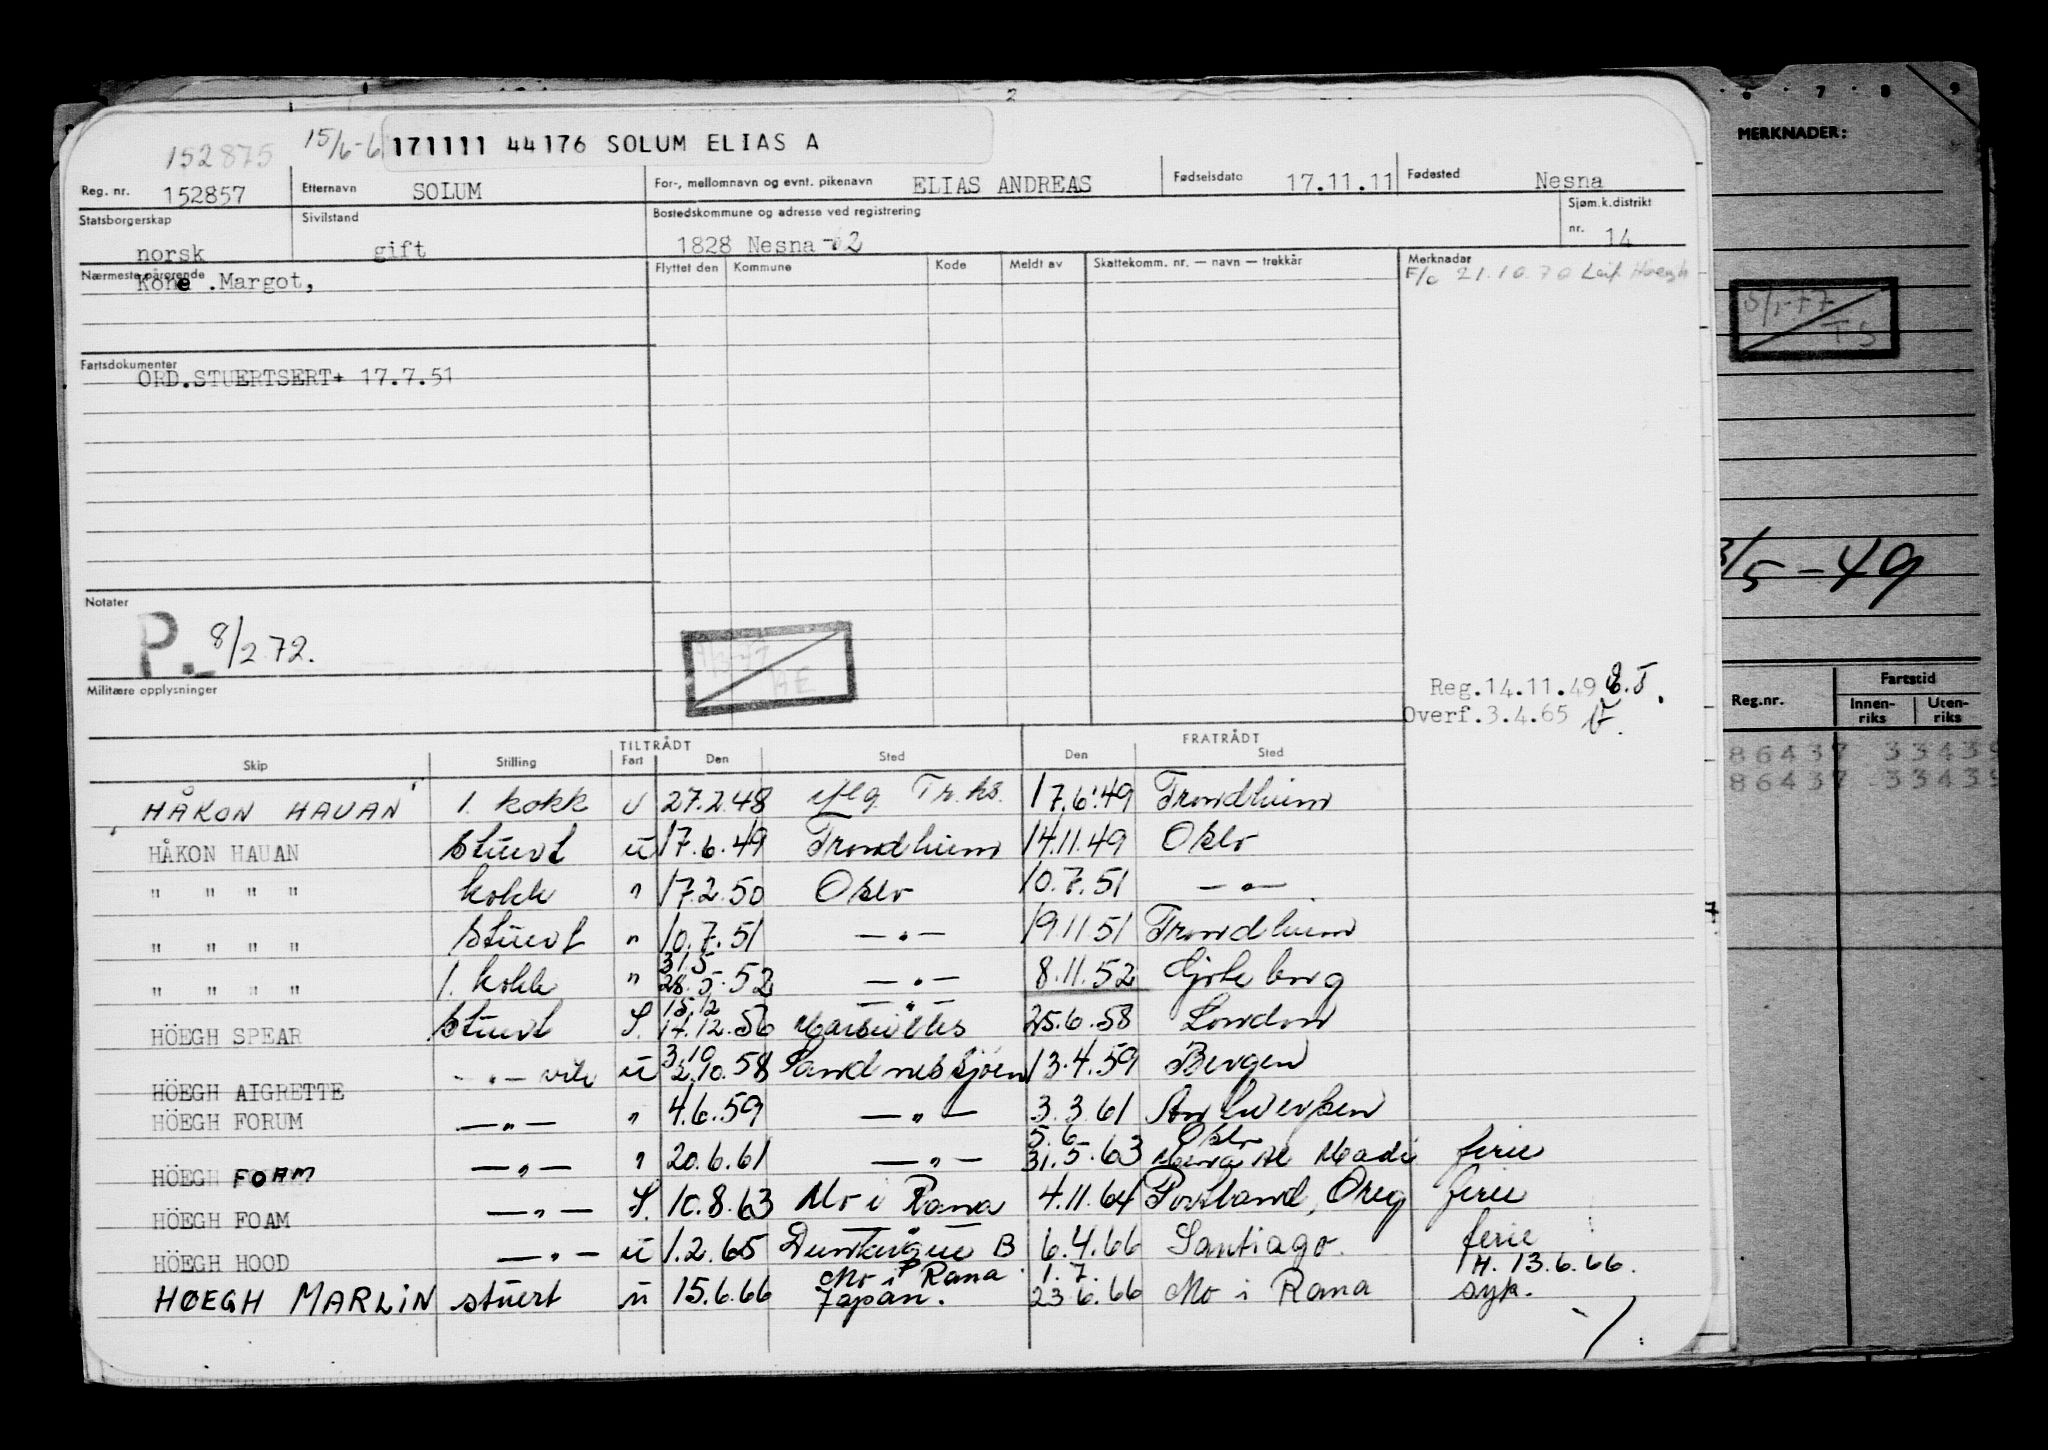 2
6 7 8 9
MERKNADER:
152875 15/6-6 171111 44176 SOLUM ELIAS A
Reg. nr. 152857 Etternavn SOLUM For-, mellomnavn og evnt. pikenavn ELIAS ANDREAS Fødselsdato 17.11.11 Fødested Nesna
Statsborgerskap norsk Sivilstand gift Bostedskommune og adresse ved registrering 1828 Nesna Sjøm.k.distrikt nr. 14
Nærmeste pårørende Flyttet den Kommune Kode Meldt av Skattekomm. nr. — navn — trekkår Merknader
Kone .Margot, F/o 21.10.70 Leif Hoegh
5/1-77
TS
Fartsdokumenter
ORD.STUERTSERT+ 17.7.51
3/5-49
Notater
P. 8/2 72.
Militære opplysninger
Reg.14.11.49
Overf.3.4.65
Reg.nr. Fartstid
Innen-riks Uten-riks
86437 33439
86437 33439
TILTRÅDT FRATRÅDT
Skip Stilling Fart Den Sted Den Sted
HÅKON HAUAN 1. kokk U 27.2.48 Tr.hs. 17.6.49 Trondheim
HÅKON HAUAN Stuert u 17.6.49 Trondheim 14.11.49 Oslo
" " " " kokk " 17.2.50 Oslo 10.7.51 — " —
" " " " Stuert " 10.7.51 — " — 19.11.51 Trondheim
31.5
" " " " 1. kokk " 28.5.52 — " — 8.11.52 Gøteborg
15.12 — " —
HÖEGH SPEAR Stuert S. 14.12.56 Marseilles 25.6.58 London
3.10
HÖEGH AIGRETTE — " — u 2.10.58 Sandnessjøen 13.4.59 Bergen
HÖEGH FORUM — " — " 4.6.59 — " — 3.3.61 Antwerpen
5.6 Oslo
HÖEGH FOAM — " — " 20.6.61 — " — 31.5.63 Mena Al Madi ferie
HÖEGH FOAM — " — S. 10.8.63 Mo i Rana 4.11.64 Portland, Oreg ferie
HÖEGH HOOD — " — u 1.2.65 Dunkerque B 6.4.66 Santiago. ferie
Mo i Rana 1.7. H. 13.6.66.
HØEGH MARLIN stuert u 15.6.66 Japan. 23.6.66 Mo i Rana syk.